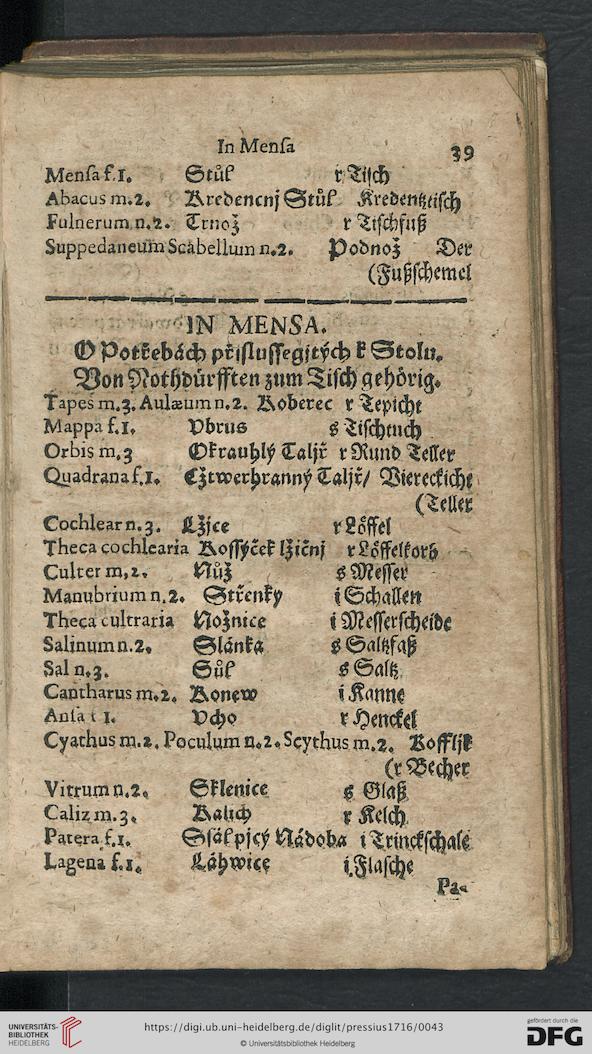 In Menſa 39
Menſa f.1. Stůl r Tiſch
Abacus m.2. Kredencnj Stůl Kredentztiſch
Fulnerum n.2. Trnož r Tiſchfuß
Suppedaneum Scabellum n.2. Podnož Der
(Fußſchemel
IN MENSA.
O Potřebách přiſluſſegjtých k Stolu.
Von Nothdürfften zum Tiſch gehörig.
Tapes m.3. Aulæum n.2. Koberec r Tepicht
Mappa f.1. Vbrus s Tiſchtuch
Orbis m.3 Okrauhlý Taljř r Rund Teller
Quadrana f.1. Cžtwerhranný Taljř/ Viereckicht
(Teller
Cochlear n.3. Lžjce r Löffel
Theca cochlearia Koſſýček lžičnj r Löffelkorb
Culter m,2. Nůž s Meſſer
Manubrium n.2. Střenky i Schallen
Theca cultraria Nožnice i Meſſerſcheide
Salinum n.2. Slánka s Saltzfaß
Sal n.3. Sůl s Saltz
Cantharus m.2. Konew i Kanne
Anſa f 1. Vcho r Henckel
Cyathus m.2. Poculum n.2. Scythus m.2. Kofflík
(r Becher
Vitrum n.2. Sklenice s Glaß
Caliz m.3. Kalich r Kelch
Patera f.1. Sſálpjcý Nádoba i Trinckſchale
Lagena f.1. Láhwice i Flaſche
Pa-
UNIVERSITÄTS-
BIBLIOTHEK
HEIDELBERG
https://digi.ub.uni-heidelberg.de/diglit/pressius1716/0043
© Universitätsbibliothek Heidelberg
gefördert durch die
DFG